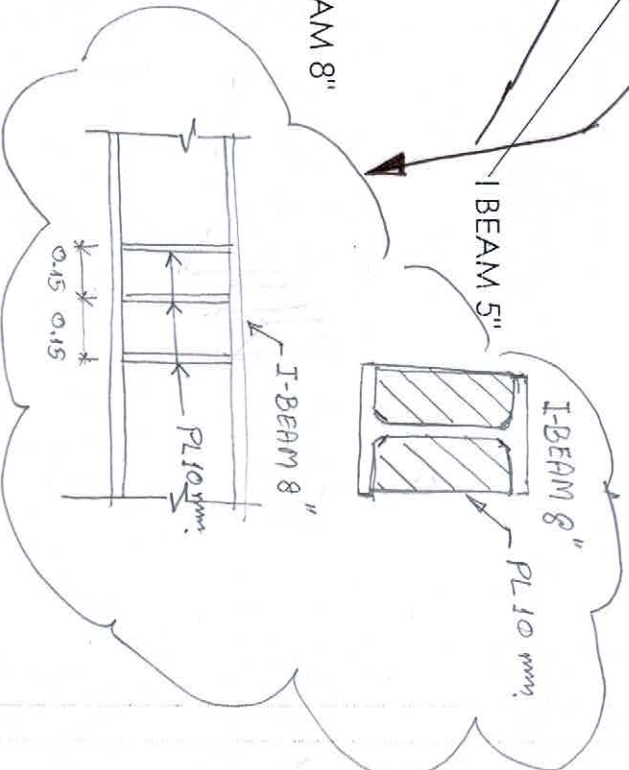 AM 8"
I BEAM 5"
I-BEAM 8"
PL 10 mm.
I-BEAM 8"
PL 10 mm.
0.15 0.15